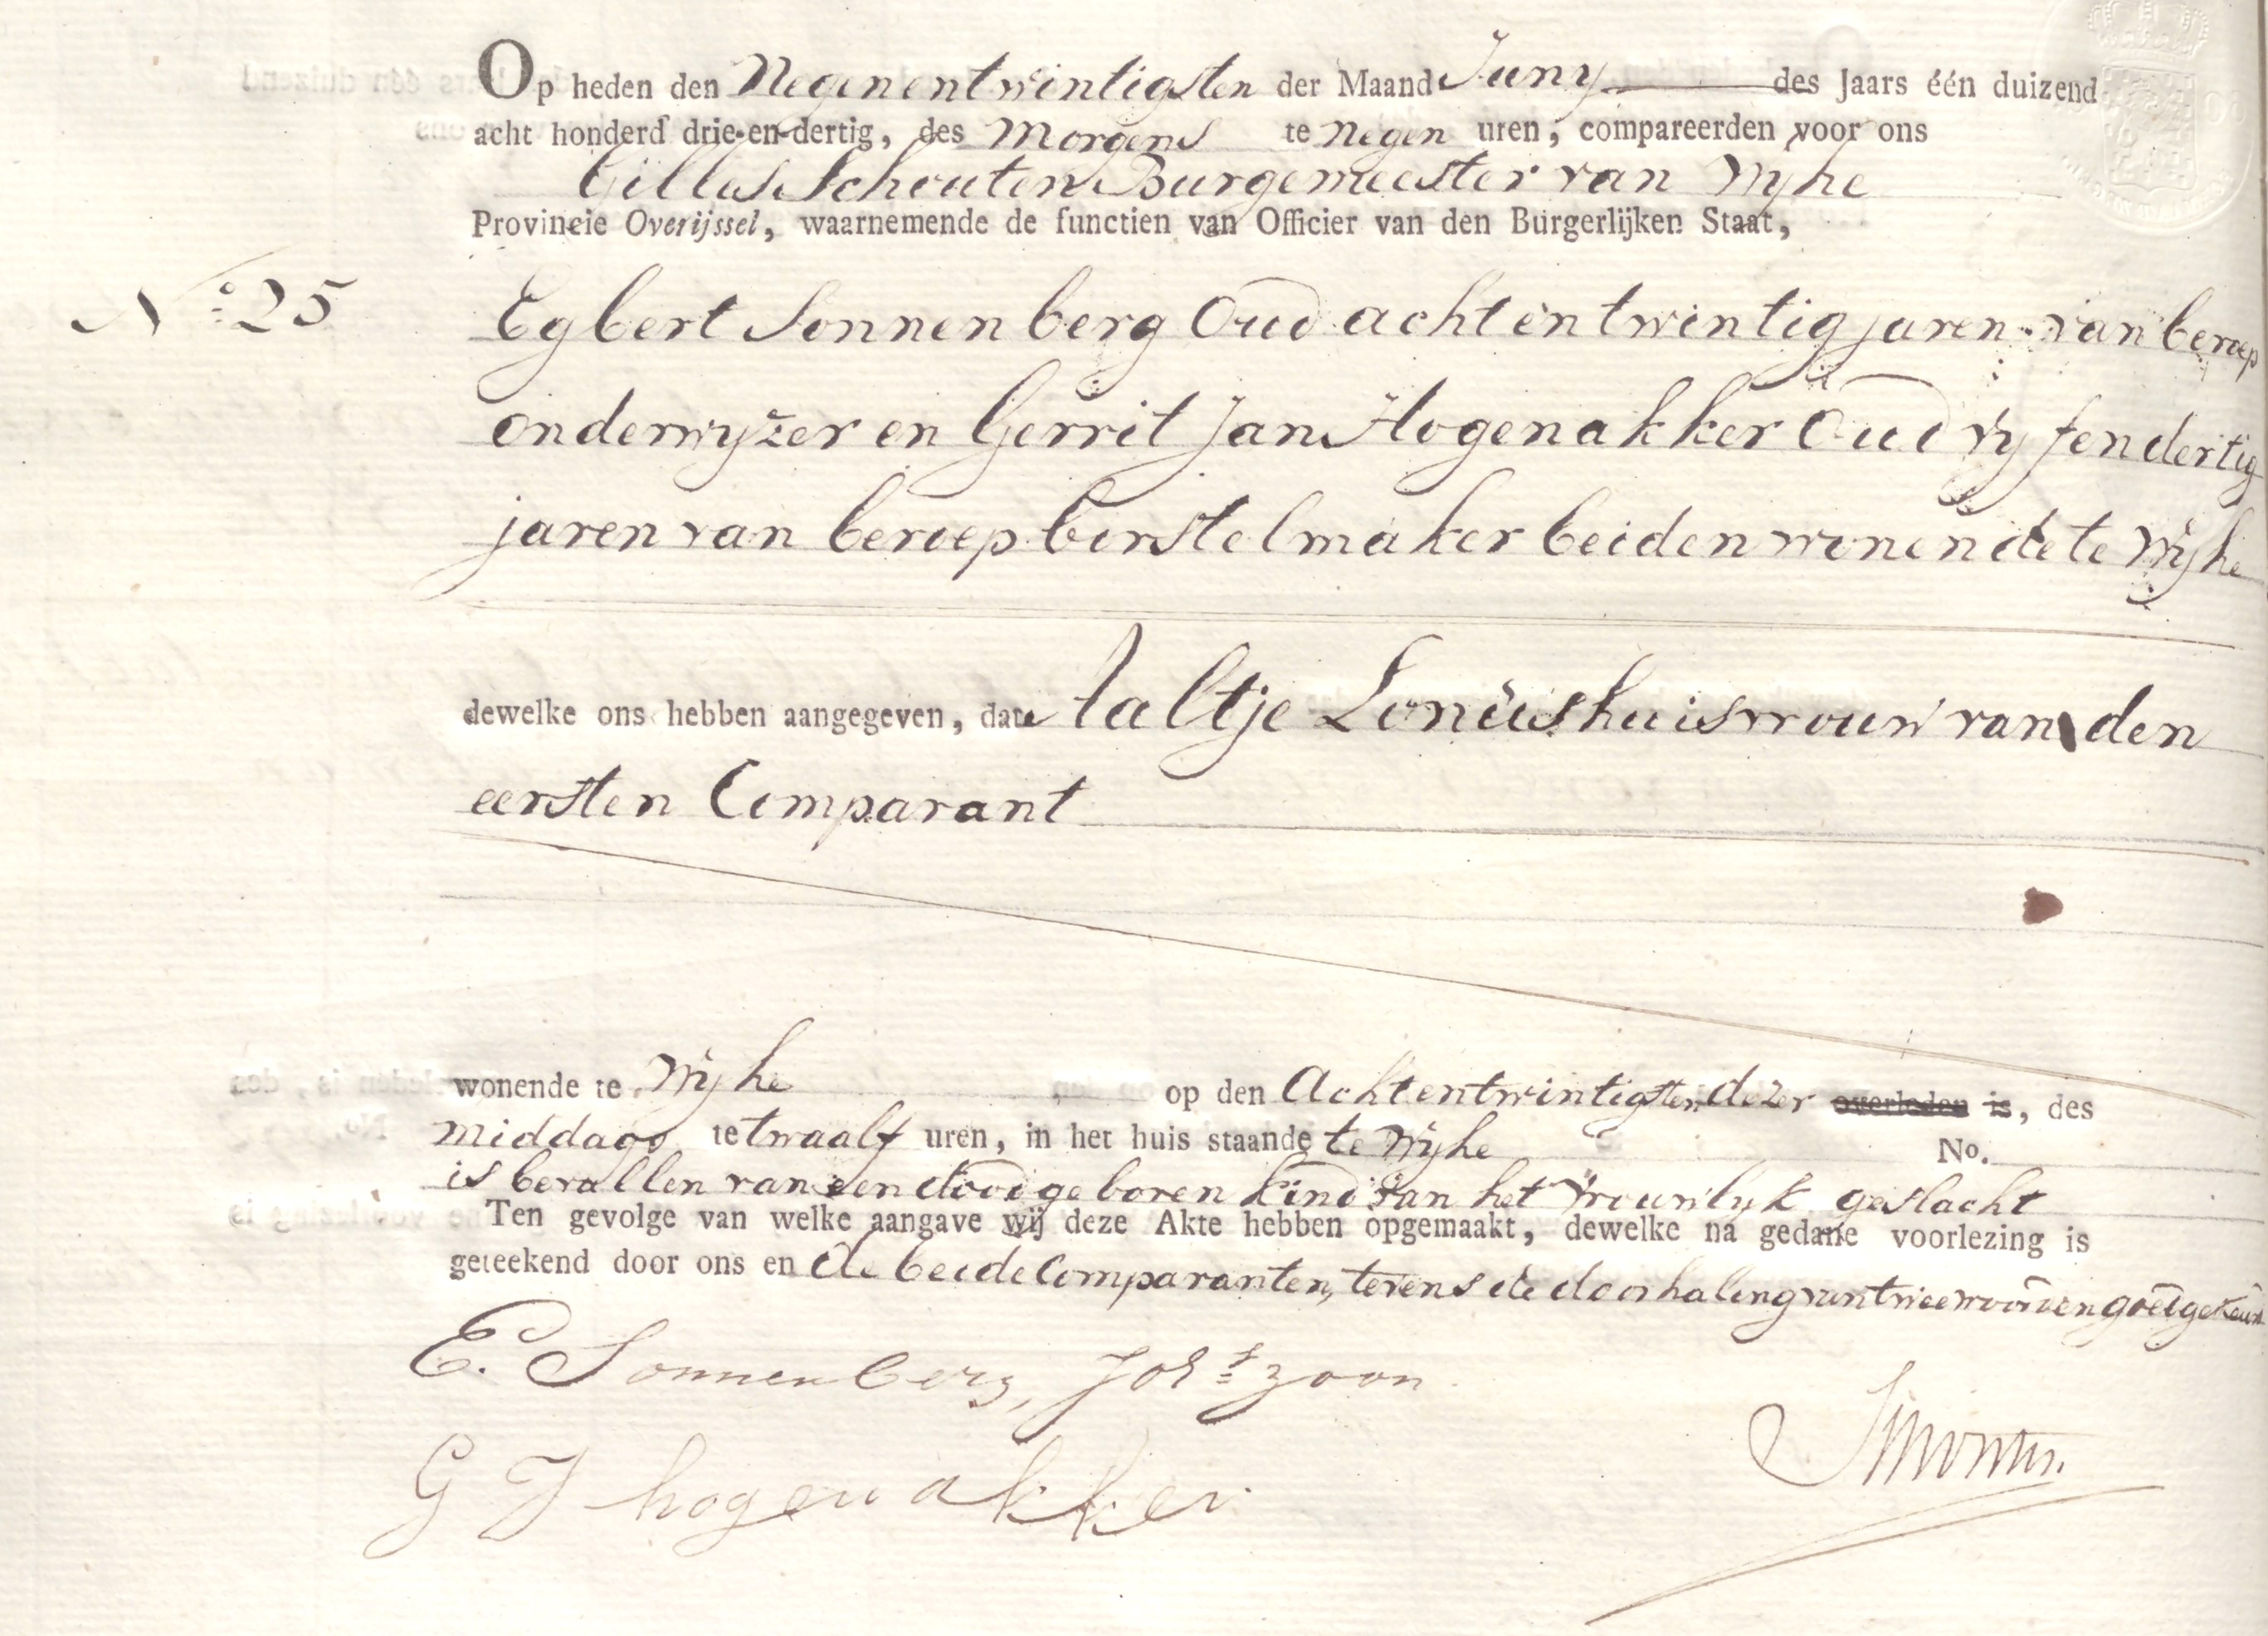 Op heden den Negenentwintigsten der Maand Juny des Jaars één duizend
acht honderd drie-en-dertig, des Morgens te negen uren, compareerden voor ons
Gilles Schouten Burgemeester van Wyhe
Provincie Overijssel, waarnemende de functien van Officier van den Burgerlijken Staat,
No. 25
Egbert Sonnenberg Oud achtentwintig jaren van beroep
onderwyzer en Gerrit Jan Hogenakker Oud vyfendertig
jaren van beroep borstelmaker beiden wonende te Wyhe
dewelke ons hebben aangegeven, dat Aaltje Lonüs huisvrouw van den
eersten Comparant
wonende te Wyhe op den Achtentwintigsten dezer overleden is, des
middags te twaalf uren, in het huis staande te Wyhe No.
is bevallen van een doodgeboren kind van het vrouwlyk geslacht
Ten gevolge van welke aangave wij deze Akte hebben opgemaakt, dewelke na gedane voorlezing is
geteekend door ons en de beide Comparanten, tevens de doorhaling van twee woorden goedgekeurd
E. Sonnenberg, Johs zoon
G J hogenakker